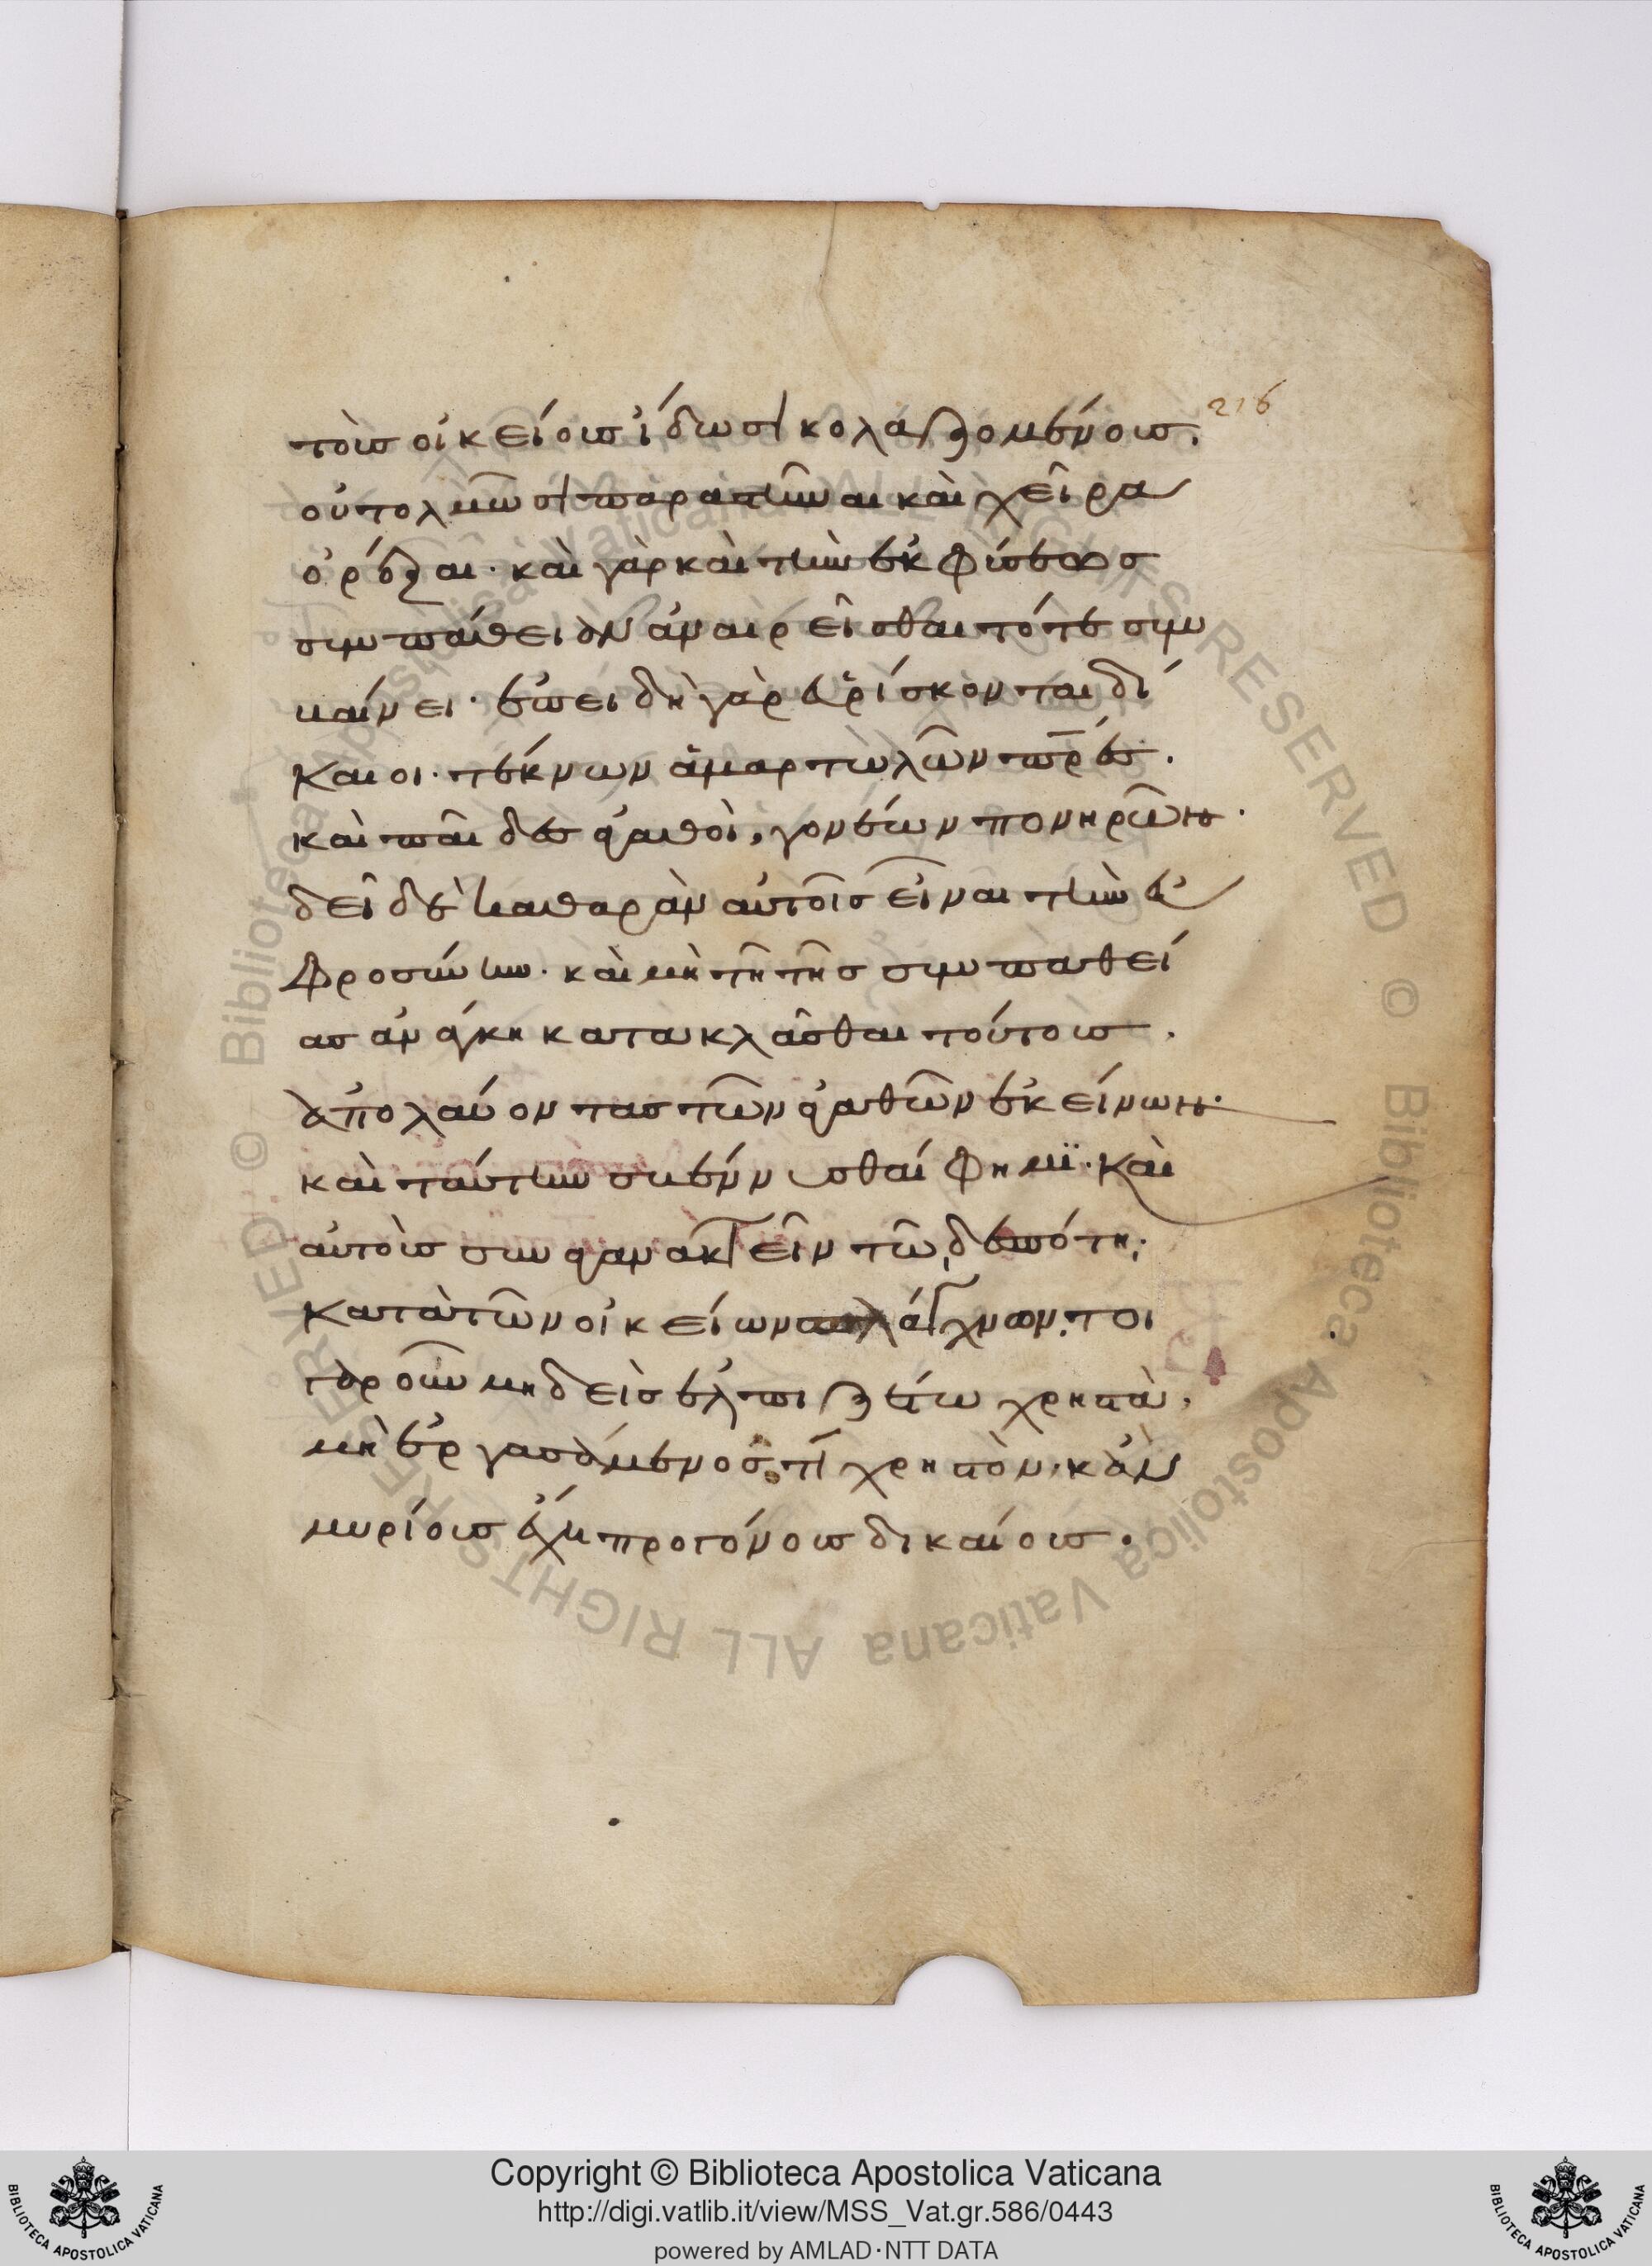 216
τοῖς οἰκείοις ἴδωσι κολαζομένοις.
οὐ τολμῶσι παραστῆναι καὶ χεῖρα
ὀρέξαι· καὶ γὰρ καὶ τὴν ἐκ φύσεως
συμπάθειαν ἀναιρεῖσθαι τότε συμ
βαίνει· ἐπειδὴ γὰρ εὑρίσκονται δί
καιοι· τέκνων ἁμαρτωλῶν πρ̅ες.
καὶ παῖδες ἀγαθοὶ, γονέων πονηρῶν·
δεῖ δὲ καθαρὰν αὐτοῖς εἶναι τὴν εὐ
φροσύνην· καὶ μὴ τῆ τῆς συμπαθεί
ας ἀνάγκη κατακλᾶσθαι τούτους.
ἀπολαύοντας τῶν ἀγαθῶν ἐκείνων·
καὶ ταύτην σβέννυσθαί φημϊ· καὶ
αὐτοὺς συναγανακτεῖν τῶ δεσπότη,
κατὰ τῶν οἰκείων σπλάγχνων· τοι
γαροῦν μηδεὶς ἐλπιζέτω χρηστὰ,
μὴ ἐργασάμενός τι χρηστὸν, κἂν
μυρίους ἔχη προγόνους δικαίους.
Copyright © Biblioteca Apostolica Vaticana
http://digi.vatlib.it/view/MSS_Vat.gr.586/0443
powered by AMLAD·NTT DATA
BIBLIOTECA APOSTOLICA VATICANA
BIBLIOTECA APOSTOLICA VATICANA
© Biblioteca Apostolica Vaticana ALL RIGHTS RESERVED © Biblioteca Apostolica Vaticana ALL RIGHTS RESERVED